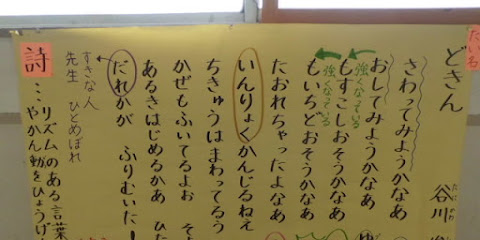 だい名
どきん
谷川
さわってみようかなあ
おしてみようかなあ
強くなっている
もすこしおそうかなあ
強くなっている
もいちどおそうかなあ
たおれちゃったよなあ
いんりょくかんじるねえ
ちきゅうはまわってるう
かぜもふいてるよお
あるきはじめるかあ ひ
だれかが ふりむいた!
すきな人
先生 ひとめぼれ
詩…リズムのある言葉
やかん動をひょうげ